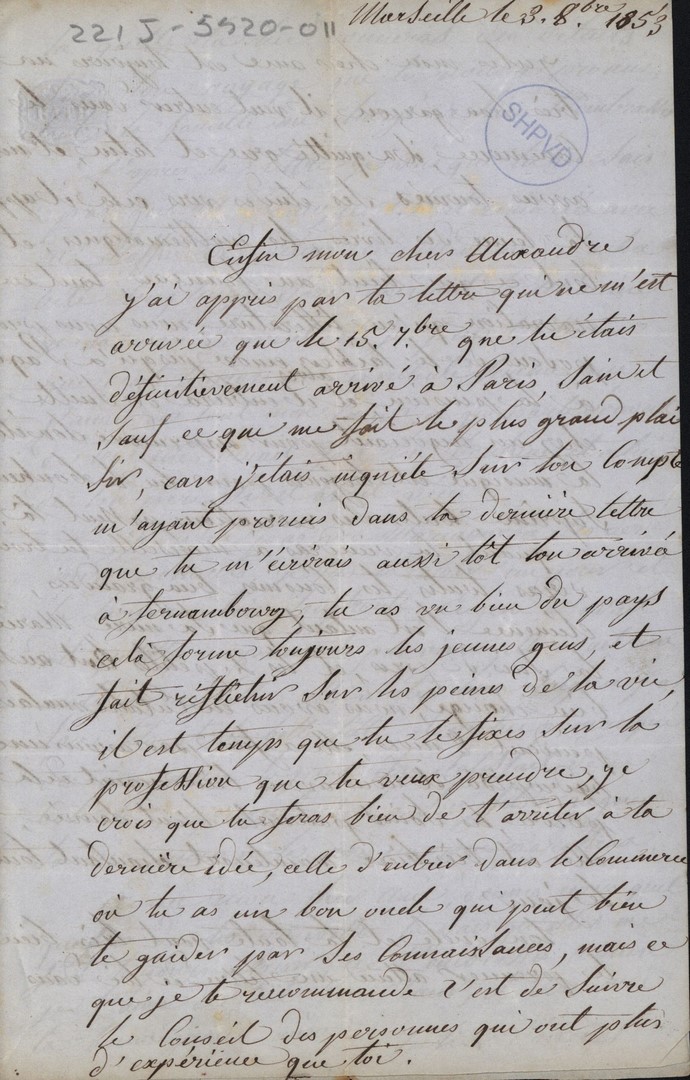 221 J - 5920-011
Marseille le 3. 8.bre 1853
SHPVD
Enfin mon cher Alexandre
j'ai appris par ta lettre qui ne m'est
arrivée que le 15. 7.bre que tu étais
définitievement arrivé à Paris, Sain et
Sauf ce qui me fait le plus grand plai
sir, car j'étais inquiéte Sur ton Compte
m'ayant promis dans ta dernière lettre
que tu m'écrirais aussi tôt ton arrivé
à fernambourg, tu as vu bien du pays
celà forme toujours les jeunes gens, et
fait réfléchir Sur les peines de la vie,
il est temps que tu te fixes Sur la
profession que tu veux prendre, je
crois que tu feras bien de t'arriter à ta
dernière idée, celle d'entrer dans le Commerce
où tu as un bon oncle qui peut bien
te gaider par Ses Connaissances, mais ce
que je te recommande c'est de Suivre
le Conseil des personnes qui ont plus
d'expérience que toi.